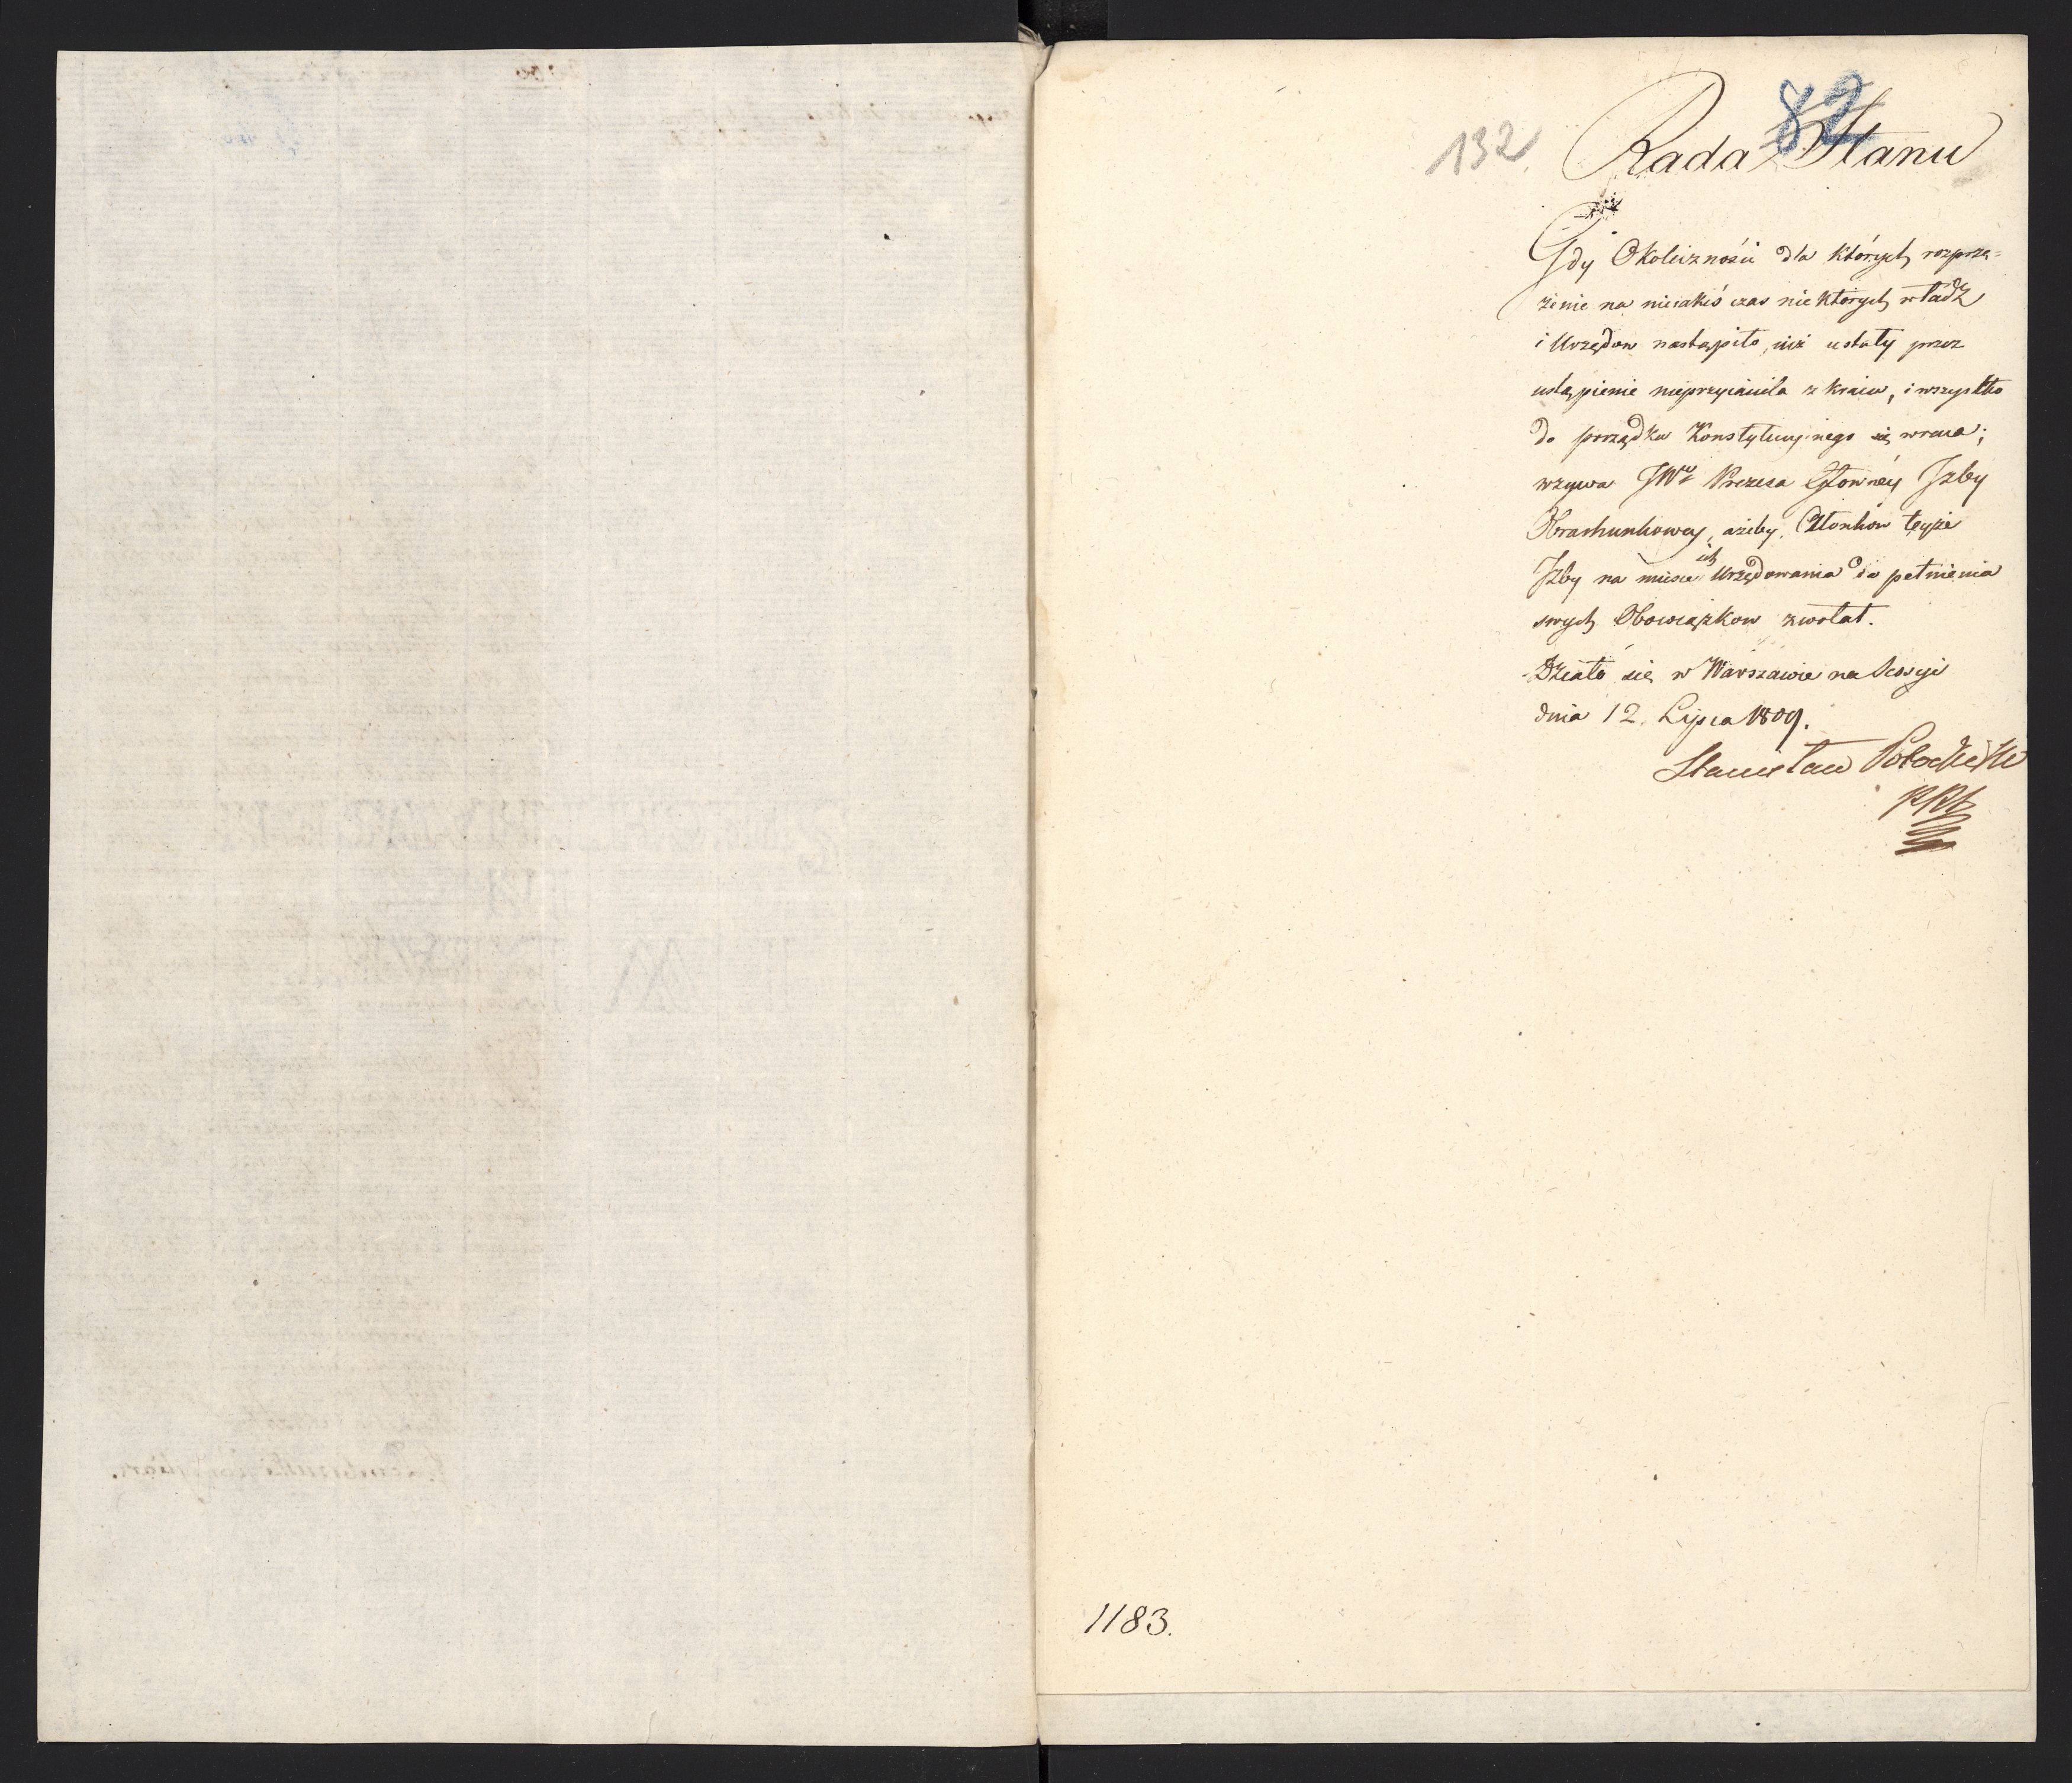 82
132.
Rada Stanu
Gdy Okoliczności dla których rozprzę=
żenie na nieiakiś czas niektórych władz
i Urzędow nastąpiło, iuż ustały przez
ustąpienie nieprzyiaciela z kraiu, i wszystko
do porządku Konstytucyinego się wraca;
wzywa JWo Prezesa Głowney Izby
Obrachunkowey, ażeby Członkow teyże
Izby na mieisce ich Urzędowania do pełnienia
swych Obowiązkow zwołał.
Działo się w Warszawie na Sessyi
dnia 12. Lipca 1809.
Stanisław Potocki
1183.